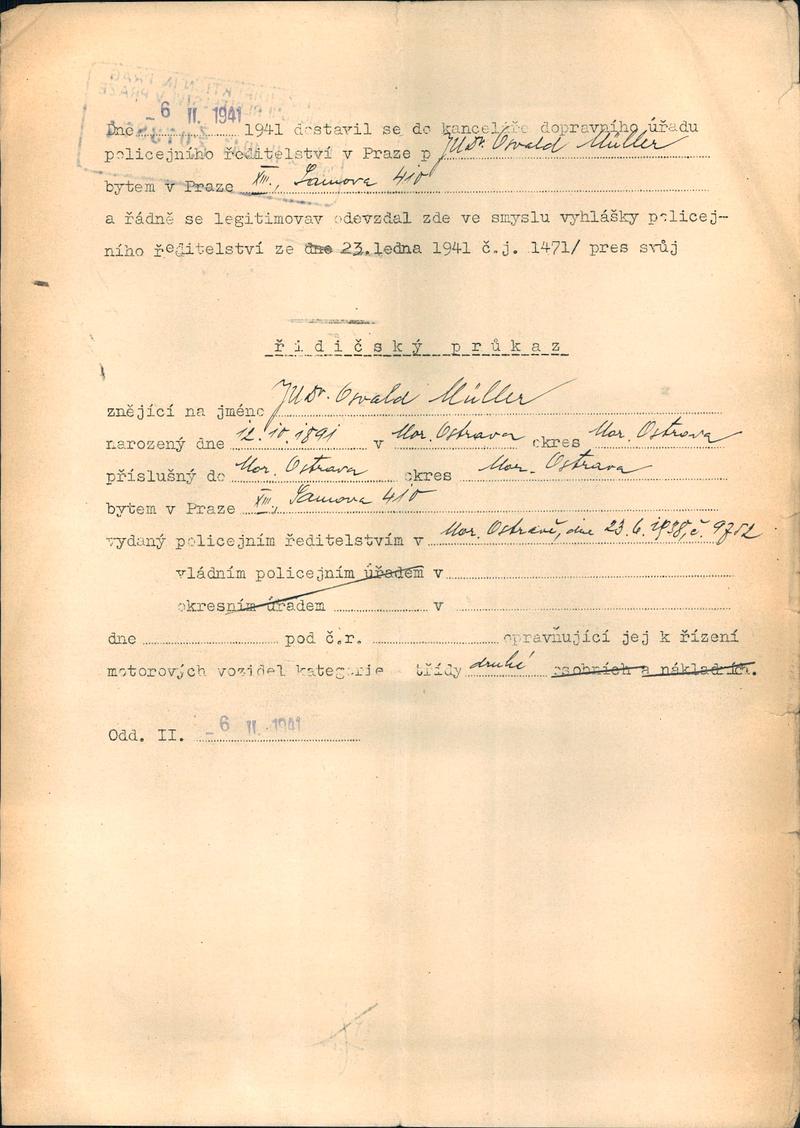 Dne - 6 II. 1941 1941 dostavil se do kanceláře dopravního úřadu
policejního ředitelství v Praze p JUDr. Osvald Müller
bytem v Praze XIII., Samova 410
a řádně se legitimovav odevzdal zde ve smyslu vyhlášky policej-
ního ředitelství ze dne 23. ledna 1941 č.j. 1471/ pres svůj
řidičský průkaz
znějící na jméno JUDr. Osvald Müller
narozený dne 12.10.1891 v Mor. Ostrava okres Mor. Ostrava
příslušný do Mor. Ostrava okres Mor. Ostrava
bytem v Praze XIII., Samova 410
vydaný policejním ředitelstvím v Mor. Ostravě, dne 23.6.1938, č. 9752
vládním policejním úřadem v
okresním úřadem v
dne pod č.r. opravňující jej k řízení
motorových vozidel kategorie třídy druhé osobních a nákladních.
Odd. II. - 6 II. 1941